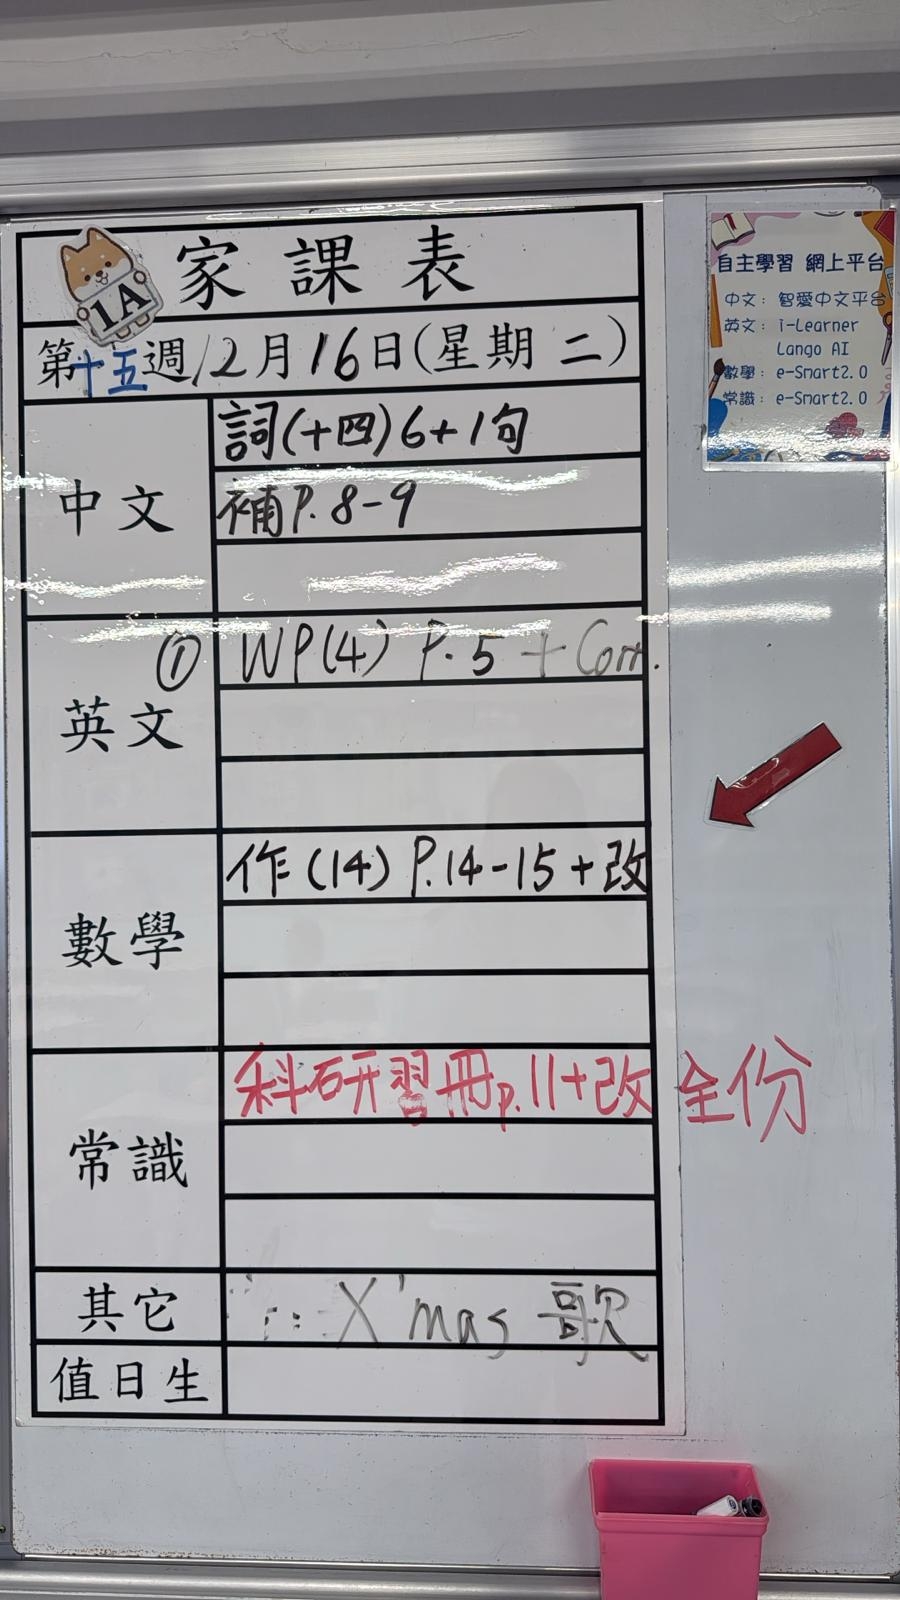 1A
家課表
第十五週 12月16日(星期二)
中文
詞(十四)6+1句
補P.8-9
英文
① WP(4) P.5 + Corr.
數學
作(14) P.14-15+改
常識
科研習冊p.11+改全份
其它
X'mas 歌
值日生
自主學習 網上平台
中文：智愛中文平台
英文：i-Learner
Lango AI
數學：e-Smart2.0
常識：e-Smart2.0